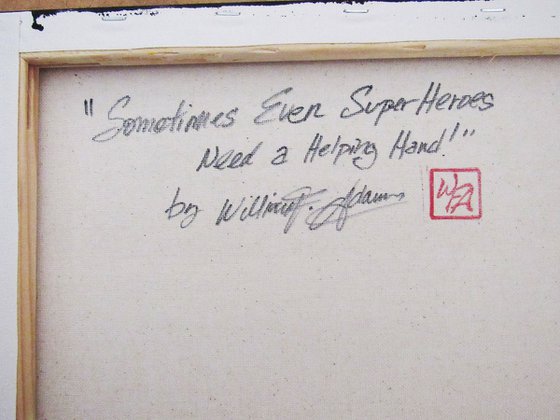 "Sometimes Even SuperHeroes
Need a Helping Hand!"
by William F. Adams
WFA